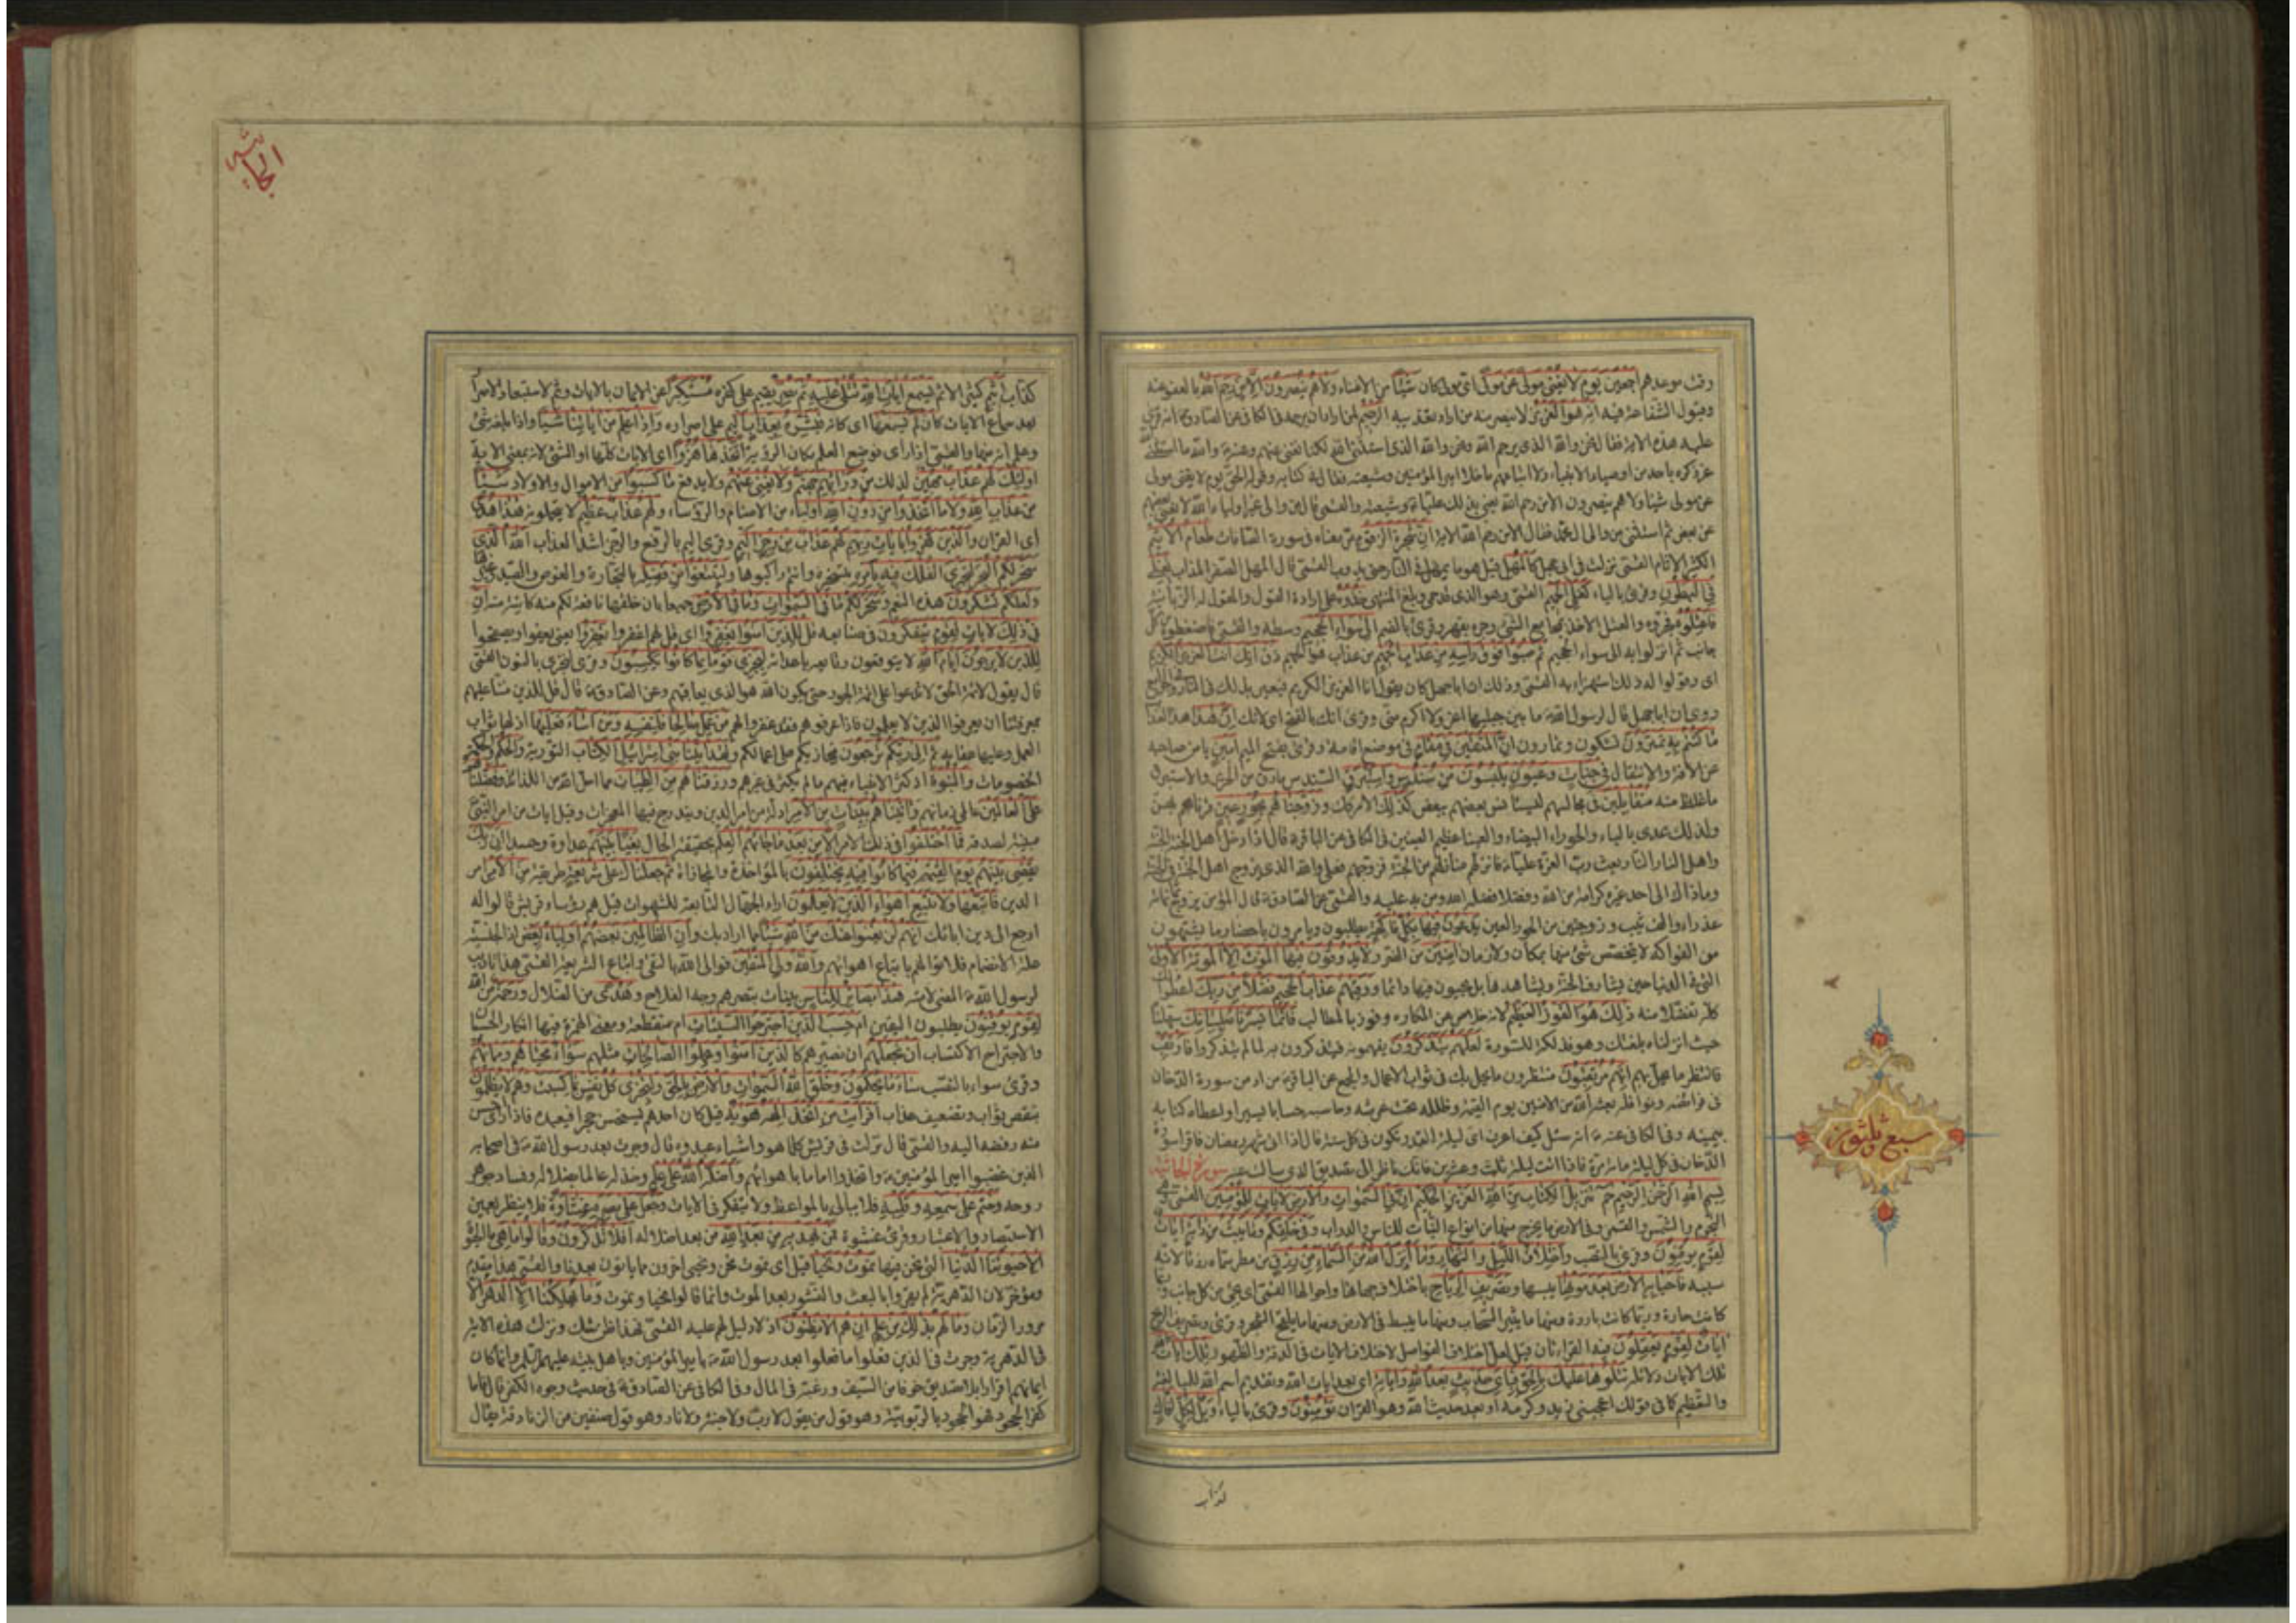 وقت موعدهم أجمعين يوم لا يغني مولى عن مولى أي مولى كان شيئا من الاغناء ولا هم ينصرون إلا من رحم الله بالعفو عنه
وقبول الشفاعة فيه إنه هو العزيز لا ينصر منه من أراد تعذيبه الرحيم لمن أراد أن يرحمه في الكافي عن الصادق انه قرئ
عليه هذه الآية فقال نحن والله الذي يرحم الله ونحن والله الذي استثنى الله لكنا نغني عنهم وعنه والله ما استثنى
عز ذكره بأحد من اوصياء الأنبياء ولا أتباعهم ما خلا أمير المؤمنين وشيعته فقال في كتابه وقوله الحق يوم لا يغني مولى
عن مولى شيئا ولا هم ينصرون إلا من رحم الله يعني بذلك عليا وشيعته والقمي قال من والى غير أولياء الله لا يغني بعضهم
عن بعض ثم استثنى من والى آل محمد فقال إلا من رحم الله الآية إن شجرة الزقوم مر معناه في سورة الصافات طعام الأثيم
الكثير الآثام القمي نزلت في أبي جهل كالمهل قيل هو ما يمهل في النار حتى يذوب القمي قال المهل الصفر المذاب يغلي
في البطون وقرئ بالياء كغلي الحميم القمي وهو الذي قد حمي وبلغ المنتهى خذوه على إرادة القول والمقول له الزبانية
فاعتلوه فجروه والعتل الأخذ بمجامع الشيء وجره بقهر وقرئ بالضم إلى سواء الجحيم وسطه والقمي فاضغطوه من كل
جانب ثم انزلوا به إلى سواء الجحيم ثم صبوا فوق رأسه من عذاب الحميم من عذاب هو الحميم ذق إنك أنت العزيز الكريم
أي وقولوا له ذلك استهزاء به القمي وذلك ان أبا جهل كان يقول أنا العزيز الكريم فيعير بذلك في النار
روي ان أبا جهل قال لرسول الله ما بين جبليها أعز ولا أكرم مني وقرئ انك بالفتح أي لأنك إن هذا هذا العذاب
ما كنتم به تمترون تشكون وتمارون إن المتقين في مقام في موضع اقامة وقرئ بفتح الميم أمين يأمن صاحبه
عن الآفة والانتقال في جنات وعيون يلبسون من سندس وإستبرق السندس ما رق من الحرير والاستبرق
ما غلظ منه متقابلين في مجالسهم ليستأنس بعضهم ببعض كذلك الأمر كذلك وزوجناهم بحور عين قرناهم بهن
ولذلك عدي بالباء والحوراء البيضاء والعيناء عظيم العينين في الكافي عن الباقر قال إذا دخل أهل الجنة الجنة
وأهل النار النار بعث رب العزة عليا فانزلهم منازلهم من الجنة فزوجهم فعلي والله الذي يزوج أهل الجنة في الجنة
وما ذاك إلى أحد غيره كرامة من الله وفضلا فضله الله ومن به عليه والقمي عن الصادق قال المؤمن يزوج ثمانمائة
عذراء والف ثيب وزوجتين من الحور العين يدعون فيها بكل فاكهة يطلبون ويأمرون باحضار ما يشتهون
من الفواكه لا يتخصص شيء منها بمكان ولا زمان آمنين من الضرر ولا يذوقون فيها الموت إلا الموتة الأولى
التي في الدنيا حين يشارف الجنة ويشاهدها بل يحيون فيها دائما ووقيهم عذاب الجحيم فضلا من ربك أعطوا
كله تفضلا منه ذلك هو الفوز العظيم لأنه خلاص من المكاره وفوز بالمطالب فإنما يسرناه بلسانك سهلناه
حيث انزلناه بلغتك وهو فذلكة للسورة لعلهم يتذكرون يفهمونه فيتذكرون به لما لم يتذكروا فارتقب
فانتظر ما يحل بهم إنهم مرتقبون منتظرون ما يحل بك في ثواب الأعمال والمجمع عن الباقر من ادمن سورة الدخان
في فرائضه ونوافله بعثه الله من الآمنين يوم القيمة وظلله تحت عرشه وحاسبه حسابا يسيرا واعطاه كتابه
بيمينه وفي الكافي عنه انه سئل كيف اعرف ان ليلة القدر تكون في كل سنة قال إذا أتى شهر رمضان فاقرأ سورة
الدخان في كل ليلة مائة مرة فإذا اتت ليلة ثلث وعشرين فانك ناظر إلى تصديق الذي سألت عنه سورة الجاثية
بسم الله الرحمن الرحيم حم تنزيل الكتاب من الله العزيز الحكيم إن في السموات والأرض لآيات للمؤمنين القمي هي
النجوم والشمس والقمر وفي الأرض ما يخرج منها من انواع النبات للناس والدواب وفي خلقكم وما يبث من دابة آيات
لقوم يوقنون وقرئ بالنصب واختلاف الليل والنهار وما أنزل الله من السماء من رزق من مطر سماه رزقا لأنه
سببه فأحيا به الأرض بعد موتها يبسها وتصريف الرياح باختلاف جهاتها واحوالها القمي أي تجيء من كل جانب وربما
كانت حارة وربما كانت باردة ومنها ما يثير السحاب ومنها ما يبسط في الأرض ومنها ما يلقح الشجر وقرئ وتصريف الريح
آيات لقوم يعقلون فيه القراءتان قيل لعل اختلاف الفواصل لاختلاف الآيات في الدقة والظهور تلك آيات الله أي
تلك الآيات دلائله نتلوها عليك بالحق فبأي حديث بعد الله وآياته أي بعد آيات الله وتقديم اسم الله للمبالغة
والتعظيم كما في قولك اعجبني زيد وكرمه أو بعد حديث الله وهو القرآن تؤمنون وقرئ بالياء ويل لكل أفاك
كذاب
سبع وثلثون
الجاثية
كذاب أثيم كثير الاثم يسمع آيات الله تتلى عليه ثم يصر يقيم على كفره مستكبرا عن الايمان بالآيات وثم لاستبعاد الاصرار
بعد سماع الآيات كأن لم يسمعها أي كأنه فبشره بعذاب أليم على اصراره وإذا علم من آياتنا شيئا وإذا بلغه شيء
وعلم انه منها والقمي إذا رأى فوضع العلم مكان الرؤية اتخذها هزوا أي الآيات كلها أو الشيء لأنه بمعنى الآية
أولئك لهم عذاب مهين لذلك من ورائهم جهنم ولا يغني عنهم ولا يدفع ما كسبوا من الأموال والأولاد شيئا
من عذاب الله ولا ما اتخذوا من دون الله أولياء من الأصنام والرؤساء ولهم عذاب عظيم لا يتحملونه هذا هدى
أي القرآن والذين كفروا بآيات ربهم لهم عذاب من رجز أليم وقرئ اليم بالرفع والرجز اشد العذاب الله الذي
سخر لكم البحر لتجري الفلك فيه بأمره بتسخيره وأنتم راكبوها ولتبتغوا من فضله بالتجارة والغوص والصيد وغيرها
ولعلكم تشكرون هذه النعم وسخر لكم ما في السموات وما في الأرض جميعا بان خلقها نافعة لكم منه كائنة منه إن
في ذلك لآيات لقوم يتفكرون في صنايعه قل للذين آمنوا يغفروا أي قل لهم اغفروا يغفروا يعني يعفوا ويصفحوا
للذين لا يرجون أيام الله لا يتوقعون وقايعه باعدائه ليجزي قوما بما كانوا يكسبون وقرئ لنجزي بالنون القمي
قال يقول لأئمة الحق لا تدعوا على ائمة الجور حتى يكون الله هو الذي يعاقبهم وعن الصادق قال قل للذين مننا عليهم
بمعرفتنا ان يعرفوا الذين لا يعلمون فإذا عرفوهم فقد غفروا لهم من عمل صالحا فلنفسه ومن أساء فعليها إذ لها ثواب
العمل وعليها عقابه ثم إلى ربكم ترجعون فيجازيكم على اعمالكم ولقد آتينا بني إسرائيل الكتاب التورية والحكم والحكمة وفصل
الخصومات والنبوة إذ كثر الأنبياء فيهم ما لم يكثر في غيرهم ورزقناهم من الطيبات مما احل الله من اللذائذ وفضلناهم
على العالمين عالمي زمانهم وآتيناهم بينات من الأمر ادلة من امر الدين ويندرج فيها المعجزات وقيل آيات من امر النبي
مبينة لصدقه فما اختلفوا في ذلك الأمر إلا من بعد ما جاءهم العلم بحقيقة الحال بغيا بينهم عداوة وحسدا إن ربك
يقضي بينهم يوم القيمة فيما كانوا فيه يختلفون بالمؤاخذة والمجازاة ثم جعلناك على شريعة طريقة من الأمر امر
الدين فاتبعها ولا تتبع أهواء الذين لا يعلمون آراء الجهال التابعة للشهوات قيل هم رؤساء قريش قالوا له
ارجع إلى دين ابائك إنهم لن يغنوا عنك من الله شيئا مما اراد بك وإن الظالمين بعضهم أولياء بعض إذ الجنسية
علة الانضمام فلا توالهم باتباع اهوائهم والله ولي المتقين فوال الله بالتقى واتباع الشريعة القمي هذا تأديب
لرسول الله والمعني لامته هذا بصائر للناس بينات تبصرهم وجه الفلاح وهدى من الضلال ورحمة من الله
لقوم يوقنون يطلبون اليقين أم حسب الذين اجترحوا السيئات ام منقطعة ومعنى الهمزة فيها انكار الحسبان
والاجتراح الاكتساب أن نجعلهم ان نصيرهم كالذين آمنوا وعملوا الصالحات مثلهم سواء محياهم ومماتهم
وقرئ سواء بالنصب ساء ما يحكمون وخلق الله السموات والأرض بالحق ولتجزى كل نفس بما كسبت وهم لا يظلمون
بنقص ثواب وتضعيف عذاب أفرأيت من اتخذ إلهه هواه قيل كان احدهم يستحسن حجرا فيعبده فإذا رأى احسن
منه رفضه إليه والقمي قال نزلت في قريش كلما هووا شيئا عبدوه قال وجرت بعد رسول الله في اصحابه
الذين غصبوا أمير المؤمنين واتخذوا إماما بأهوائهم وأضله الله على علم وخذله عالما بضلاله وفساد جوهر
روحه وختم على سمعه وقلبه فلا يبالي بالمواعظ ولا يتفكر في الآيات وجعل على بصره غشاوة فلا ينظر بعين
الاستبصار والاعتبار وقرئ غشوة فمن يهديه من بعد الله من بعد اضلاله أفلا تذكرون وقالوا ما هي ما الحيوة
إلا حيوتنا الدنيا التي نحن فيها نموت ونحيا قيل أي نموت نحن ونحيى آخرون ممن يأتون بعدنا والقمي هذا مقدم
ومؤخر لأن الدهرية لم يقروا بالبعث والنشور بعد الموت وانما قالوا نحيا ونموت وما يهلكنا إلا الدهر إلا
مرور الزمان وما لهم بذلك من علم إن هم إلا يظنون إذ لا دليل لهم عليه القمي فهذا ظن شك ونزلت هذه الآية
في الدهرية وجرت في الذين فعلوا ما فعلوا بعد رسول الله بأمير المؤمنين وبأهل بيته عليهم السلام وانما كان
ايمانهم اقرارا بلا تصديق خوفا من السيف ورغبة في المال وفي الكافي عن الصادق في حديث وجوه الكفر قال فأما
كفر الجحود فهو الجحود بالربوبية وهو قول من يقول لا رب ولا جنة ولا نار وهو قول صنفين من الزنادقة يقال